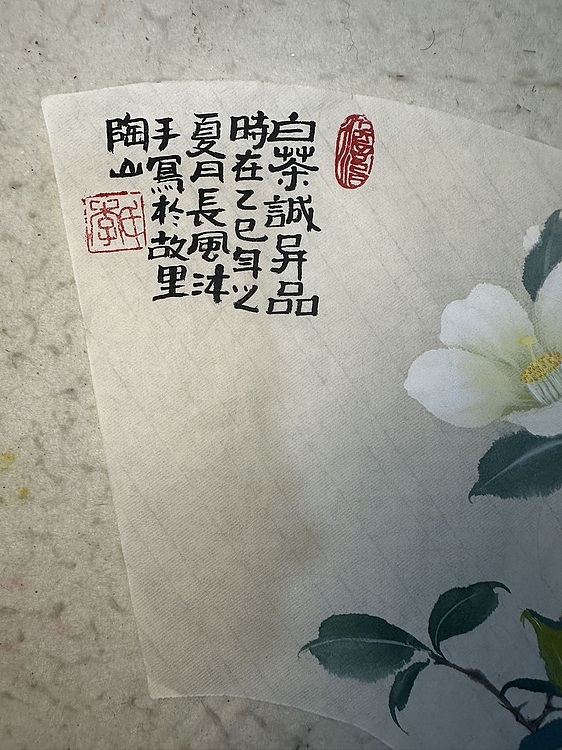 白茶誠异品
時在乙巳年之
夏月長風沐
手寫於故里
陶山